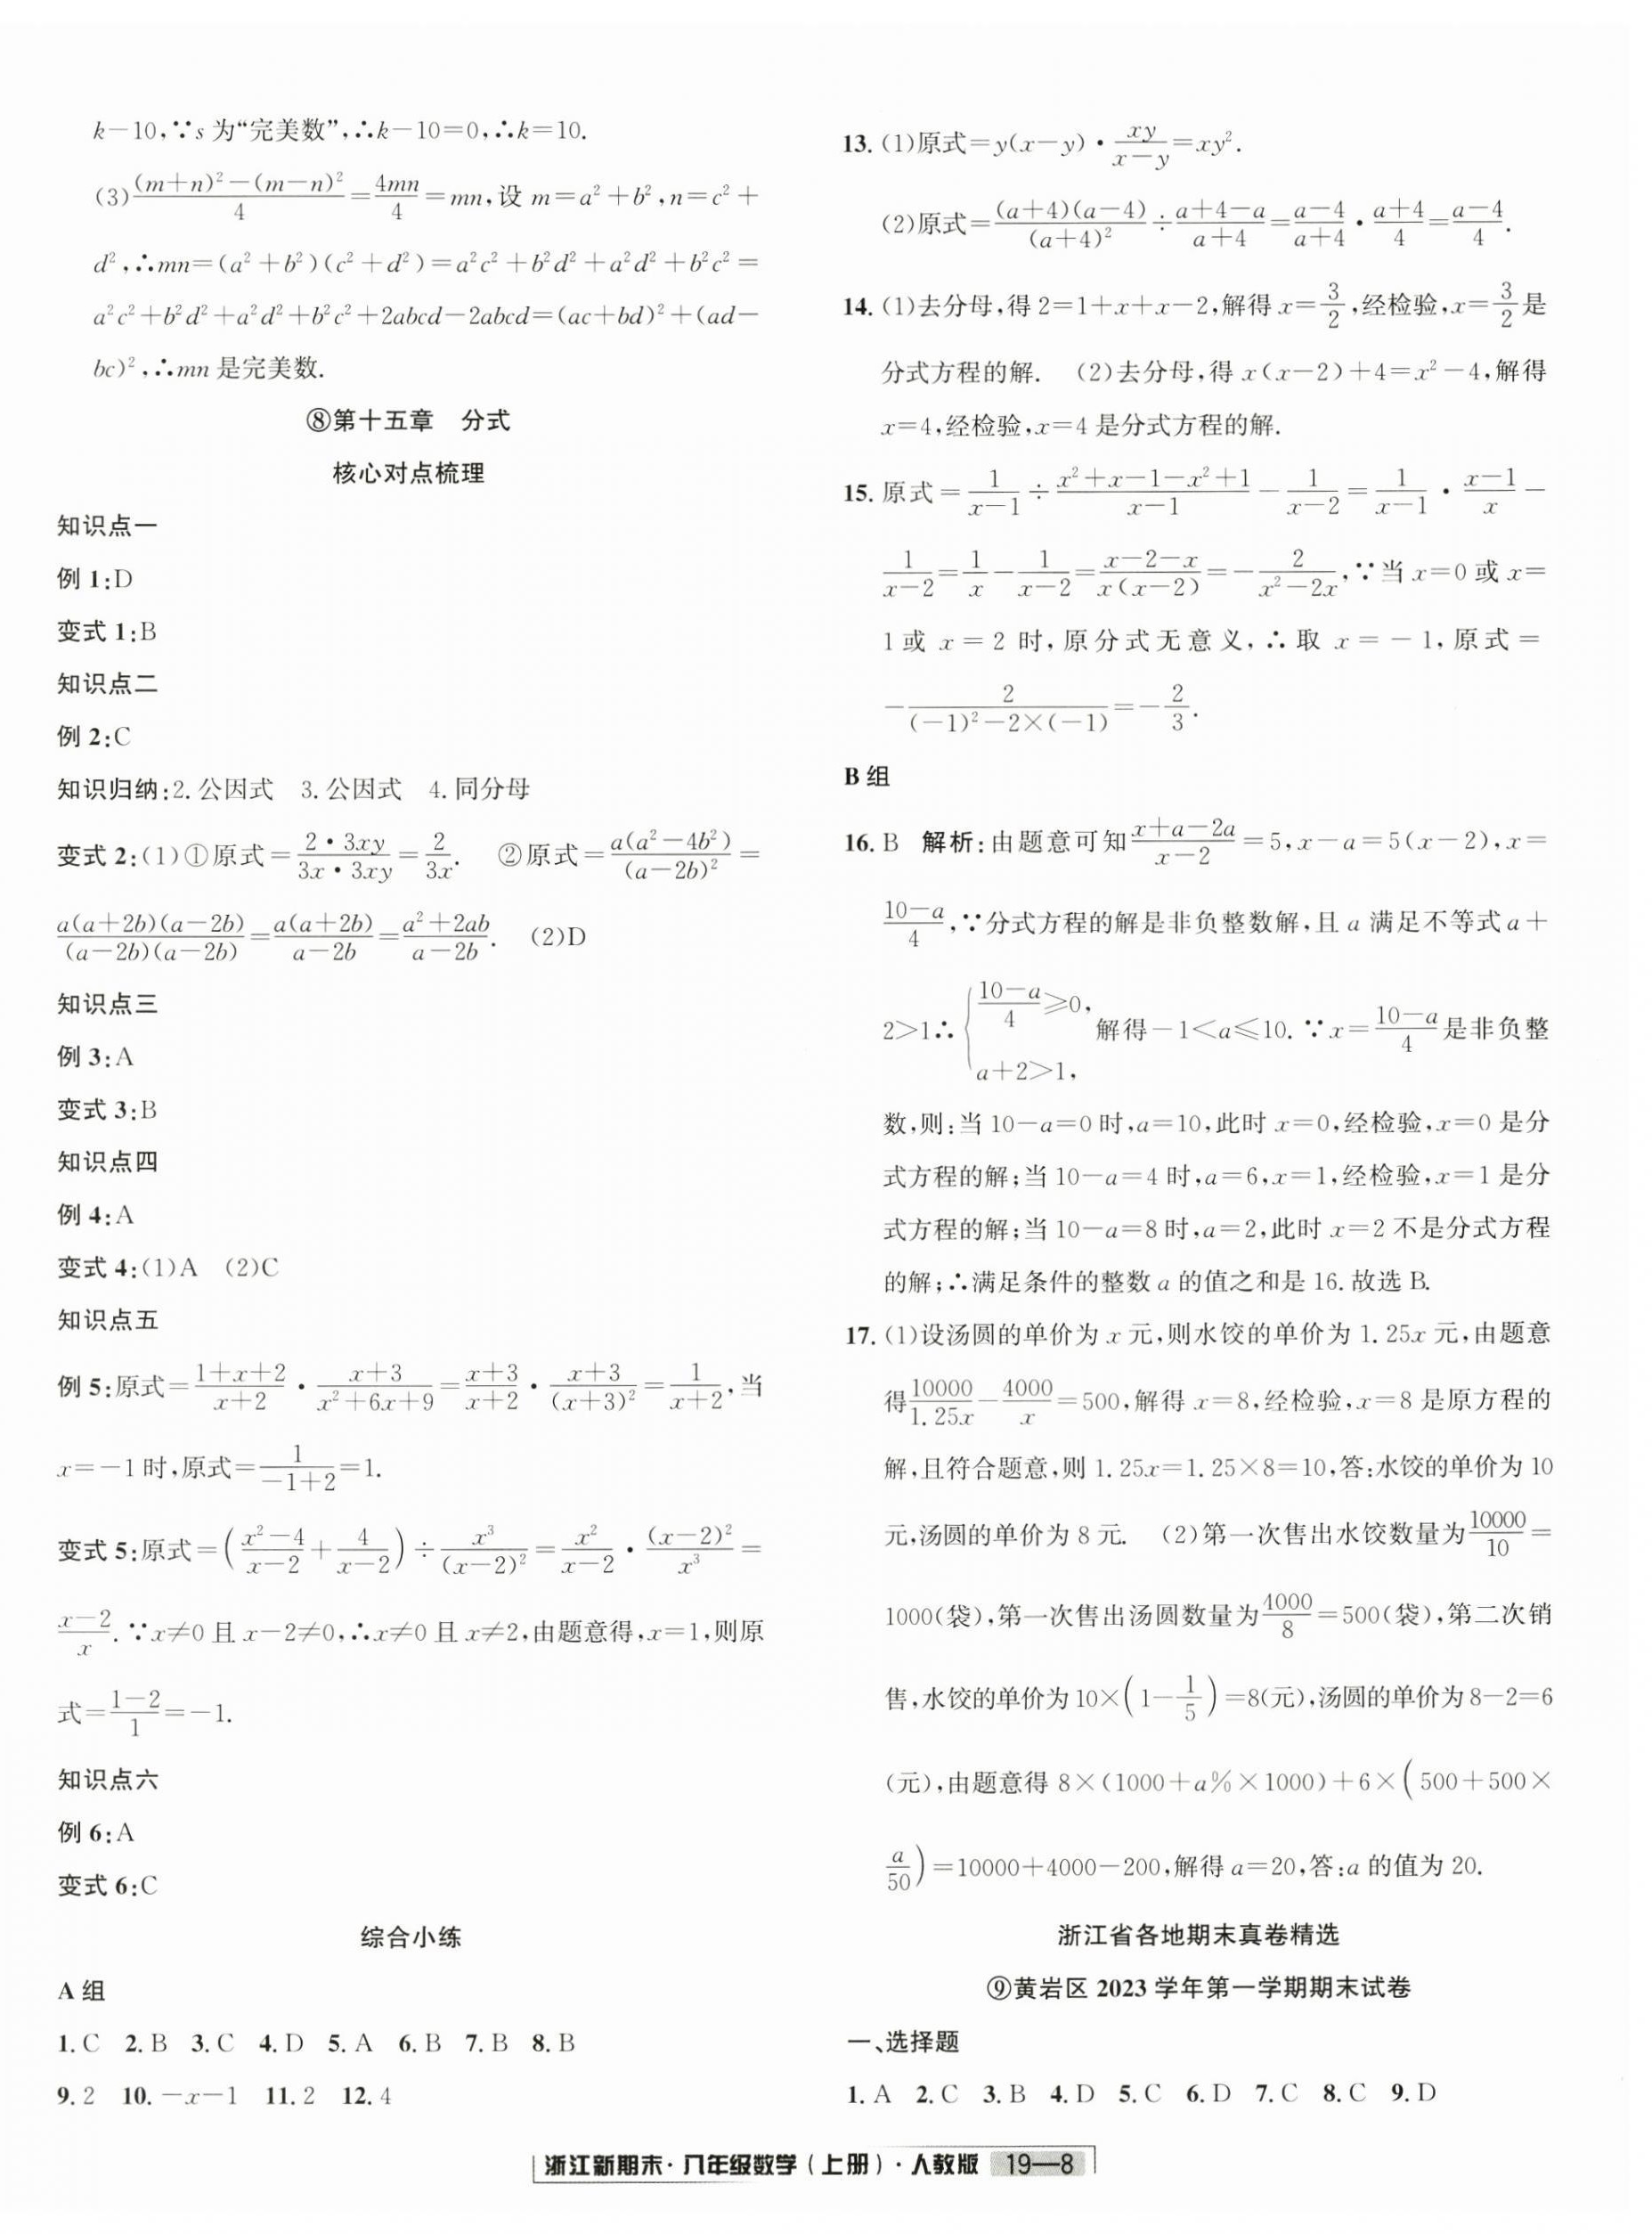 k－10,∵s 为“完美数”,∴k－10=0,∴k=10.
(3)\frac{(m+n)²－(m－n)²}{4}=\frac{4mn}{4}=mn,设 m=a²+b²,n=c²+
d²,∴mn=(a²+b²)(c²+d²)=a²c²+b²d²+a²d²+b²c²=
a²c²+b²d²+a²d²+b²c²+2abcd－2abcd=(ac+bd)²+(ad－
bc)²,∴mn 是完美数.
⑧第十五章　分式
核心对点梳理
知识点一
例 1:D
变式 1:B
知识点二
例 2:C
知识归纳:2. 公因式　3. 公因式　4. 同分母
变式 2:(1)①原式=\frac{2·3xy}{3x·3xy}=\frac{2}{3x}.　②原式=\frac{a(a²－4b²)}{(a－2b)²}=
\frac{a(a+2b)(a－2b)}{(a－2b)(a－2b)}=\frac{a(a+2b)}{a－2b}=\frac{a²+2ab}{a－2b}.　(2)D
知识点三
例 3:A
变式 3:B
知识点四
例 4:A
变式 4:(1)A　(2)C
知识点五
例 5:原式=\frac{1+x+2}{x+2}·\frac{x+3}{x²+6x+9}=\frac{x+3}{x+2}·\frac{x+3}{(x+3)²}=\frac{1}{x+2},当
x=－1 时,原式=\frac{1}{－1+2}=1.
变式 5:原式=(\frac{x²－4}{x－2}+\frac{4}{x－2})÷\frac{x³}{(x－2)²}=\frac{x²}{x－2}·\frac{(x－2)²}{x³}=
\frac{x－2}{x}.∵x≠0 且 x－2≠0,∴x≠0 且 x≠2,由题意得,x=1,则原
式=\frac{1－2}{1}=－1.
知识点六
例 6:A
变式 6:C
综合小练
A 组
1. C　2. B　3. C　4. D　5. A　6. B　7. B　8. B
9. 2　10. －x－1　11. 2　12. 4
13. (1)原式=y(x－y)·\frac{xy}{x－y}=xy².
(2)原式=\frac{(a+4)(a－4)}{(a+4)²}÷\frac{a+4－a}{a+4}=\frac{a－4}{a+4}·\frac{a+4}{4}=\frac{a－4}{4}.
14. (1)去分母,得 2=1+x+x－2,解得 x=\frac{3}{2},经检验,x=\frac{3}{2}是
分式方程的解.　(2)去分母,得 x(x－2)+4=x²－4,解得
x=4,经检验,x=4 是分式方程的解.
15. 原式=\frac{1}{x－1}÷\frac{x²+x－1－x²+1}{x－1}－\frac{1}{x－2}=\frac{1}{x－1}·\frac{x－1}{x}－
\frac{1}{x－2}=\frac{1}{x}－\frac{1}{x－2}=\frac{x－2－x}{x(x－2)}=－\frac{2}{x²－2x},∵当 x=0 或 x=
1 或 x=2 时,原分式无意义,∴取 x=－1,原式=
－\frac{2}{(－1)²－2×(－1)}=－\frac{2}{3}.
B 组
16. B　解析:由题意可知\frac{x+a－2a}{x－2}=5,x－a=5(x－2),x=
\frac{10－a}{4},∵分式方程的解是非负整数解,且 a 满足不等式 a+
2>1∴{\frac{10－a}{4}≥0, a+2>1, 解得－1<a≤10. ∵x=\frac{10－a}{4}是非负整
数,则:当 10－a=0 时,a=10,此时 x=0,经检验,x=0 是分
式方程的解;当 10－a=4 时,a=6,x=1,经检验,x=1 是分
式方程的解;当 10－a=8 时,a=2,此时 x=2 不是分式方程
的解;∴满足条件的整数 a 的值之和是 16. 故选 B.
17. (1)设汤圆的单价为 x 元,则水饺的单价为 1. 25x 元,由题意
得\frac{10000}{1. 25x}－\frac{4000}{x}=500,解得 x=8,经检验,x=8 是原方程的
解,且符合题意,则 1. 25x=1. 25×8=10,答:水饺的单价为 10
元,汤圆的单价为 8 元.　(2)第一次售出水饺数量为\frac{10000}{10}=
1000(袋),第一次售出汤圆数量为\frac{4000}{8}=500(袋),第二次销
售,水饺的单价为 10×(1－\frac{1}{5})=8(元),汤圆的单价为 8－2=6
(元),由题意得 8×(1000+a%×1000)+6×(500+500×
\frac{a}{50})=10000+4000－200,解得 a=20,答:a 的值为 20.
浙江省各地期末真卷精选
⑨黄岩区 2023 学年第一学期期末试卷
一、选择题
1. A　2. C　3. B　4. D　5. C　6. D　7. C　8. C　9. D
浙江新期末·八年级数学(上册)·人教版　19—8